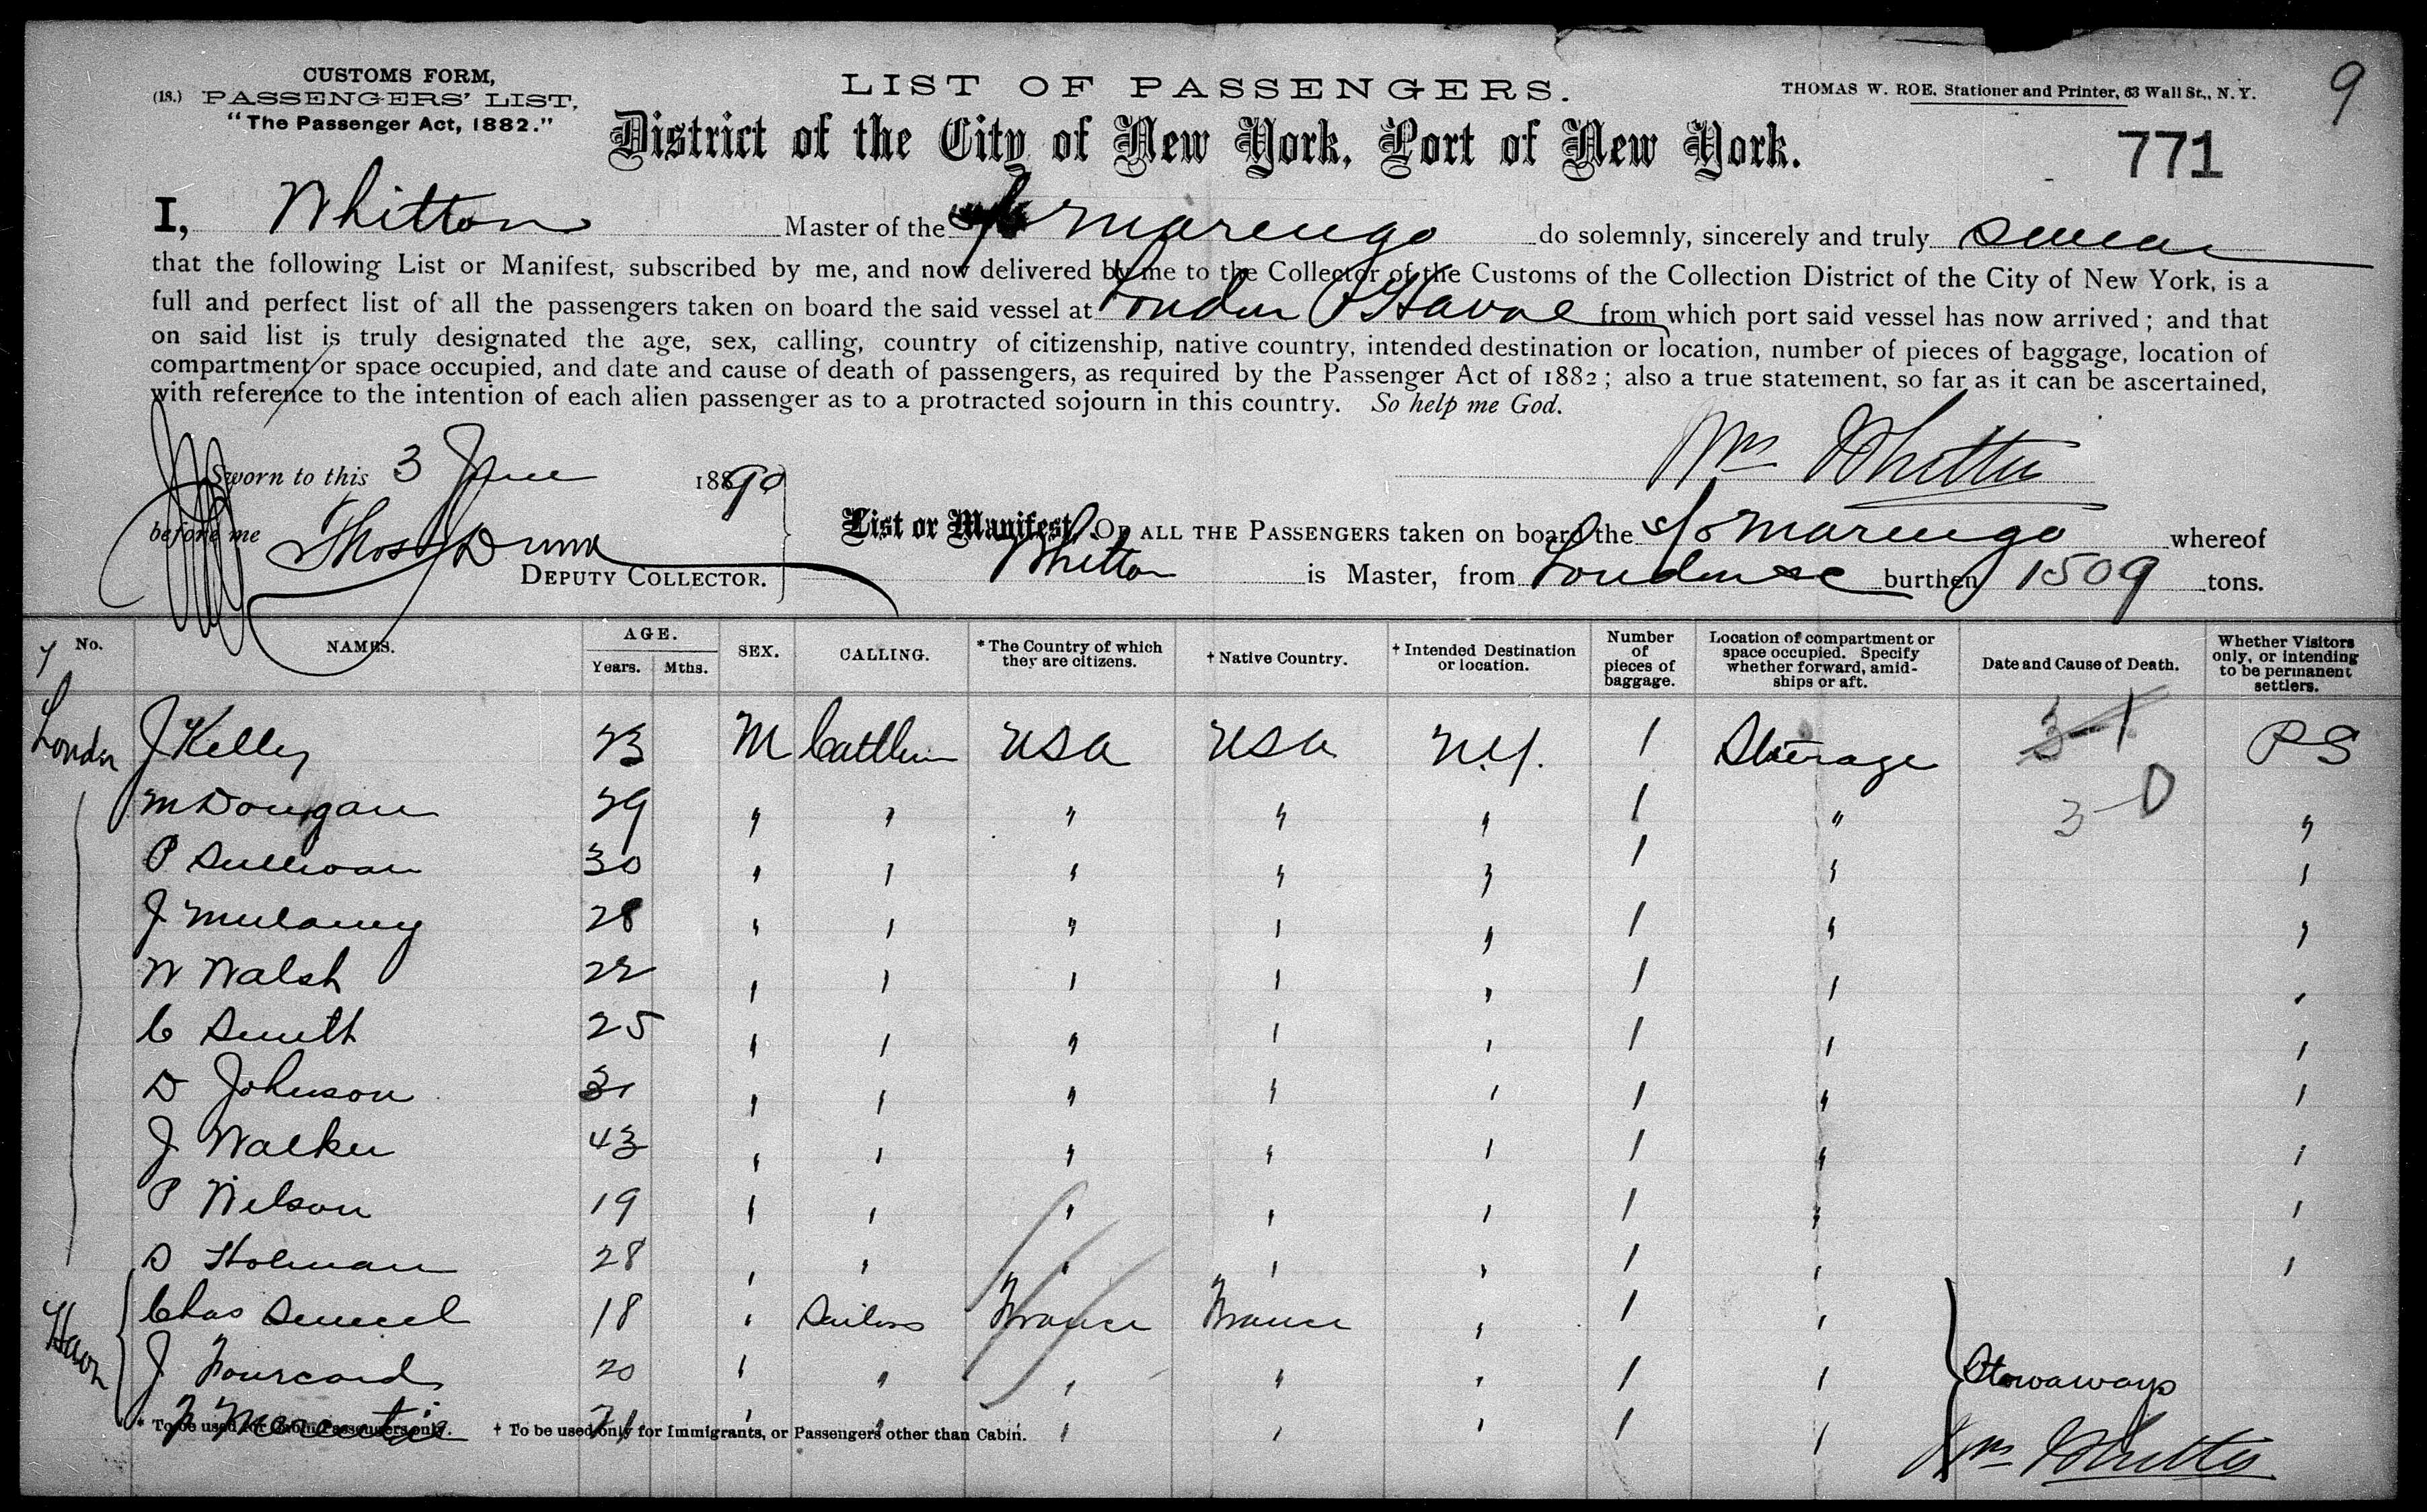 CUSTOMS FORM,
(18.) PASSENGERS' LIST,
"The Passenger Act, 1882."
LIST OF PASSENGERS.
THOMAS W. ROE, Stationer and Printer, 63 Wall St., N.Y.
9
District of the City of New York, Port of New York.
771
I, Whitton Master of the Marengo do solemnly, sincerely and truly swear
that the following List or Manifest, subscribed by me, and now delivered by me to the Collector of the Customs of the Collection District of the City of New York, is a
full and perfect list of all the passengers taken on board the said vessel at London & Havre from which port said vessel has now arrived; and that
on said list is truly designated the age, sex, calling, country of citizenship, native country, intended destination or location, number of pieces of baggage, location of
compartment or space occupied, and date and cause of death of passengers, as required by the Passenger Act of 1882; also a true statement, so far as it can be ascertained,
with reference to the intention of each alien passenger as to a protracted sojourn in this country. So help me God.
Wm Whitton
Sworn to this 3 June 1890
before me Thos Dunn
DEPUTY COLLECTOR.
List or Manifest, OF ALL THE PASSENGERS taken on board the S/s Marengo whereof
Whitton is Master, from London burthen 1509 tons.
No. NAMES. AGE. Years. Mths. SEX. CALLING. * The Country of which they are citizens. † Native Country. † Intended Destination or location. Number of pieces of baggage. Location of compartment or space occupied. Specify whether forward, amidships or aft. Date and Cause of Death. Whether Visitors only, or intending to be permanent settlers.
London J Kelly 23 M USA USA N.Y. 1 Steerage 3-1 PS
M Dougan 29 " " " " " 1 " 3-0 "
P Sullivan 30 " " " " " 1 " "
J Mulaney 28 " " " " " 1 " "
W Walsh 22 " " " " " 1 " "
C Smith 25 " " " " " 1 " "
D Johnson 31 " " " " " 1 " "
J Walker 43 " " " " " 1 " "
P Nelson 19 " " " " " 1 " "
S Holman 28 " " " " " 1 " "
Havre Chas 18 " Sailors France France " 1 "
J Fourcard 20 " " " " " 1 " Stowaways
21 " " " " " 1 "
* To be used for Cabin Passengers only. † To be used only for Immigrants, or Passengers other than Cabin.
Wm Whitton